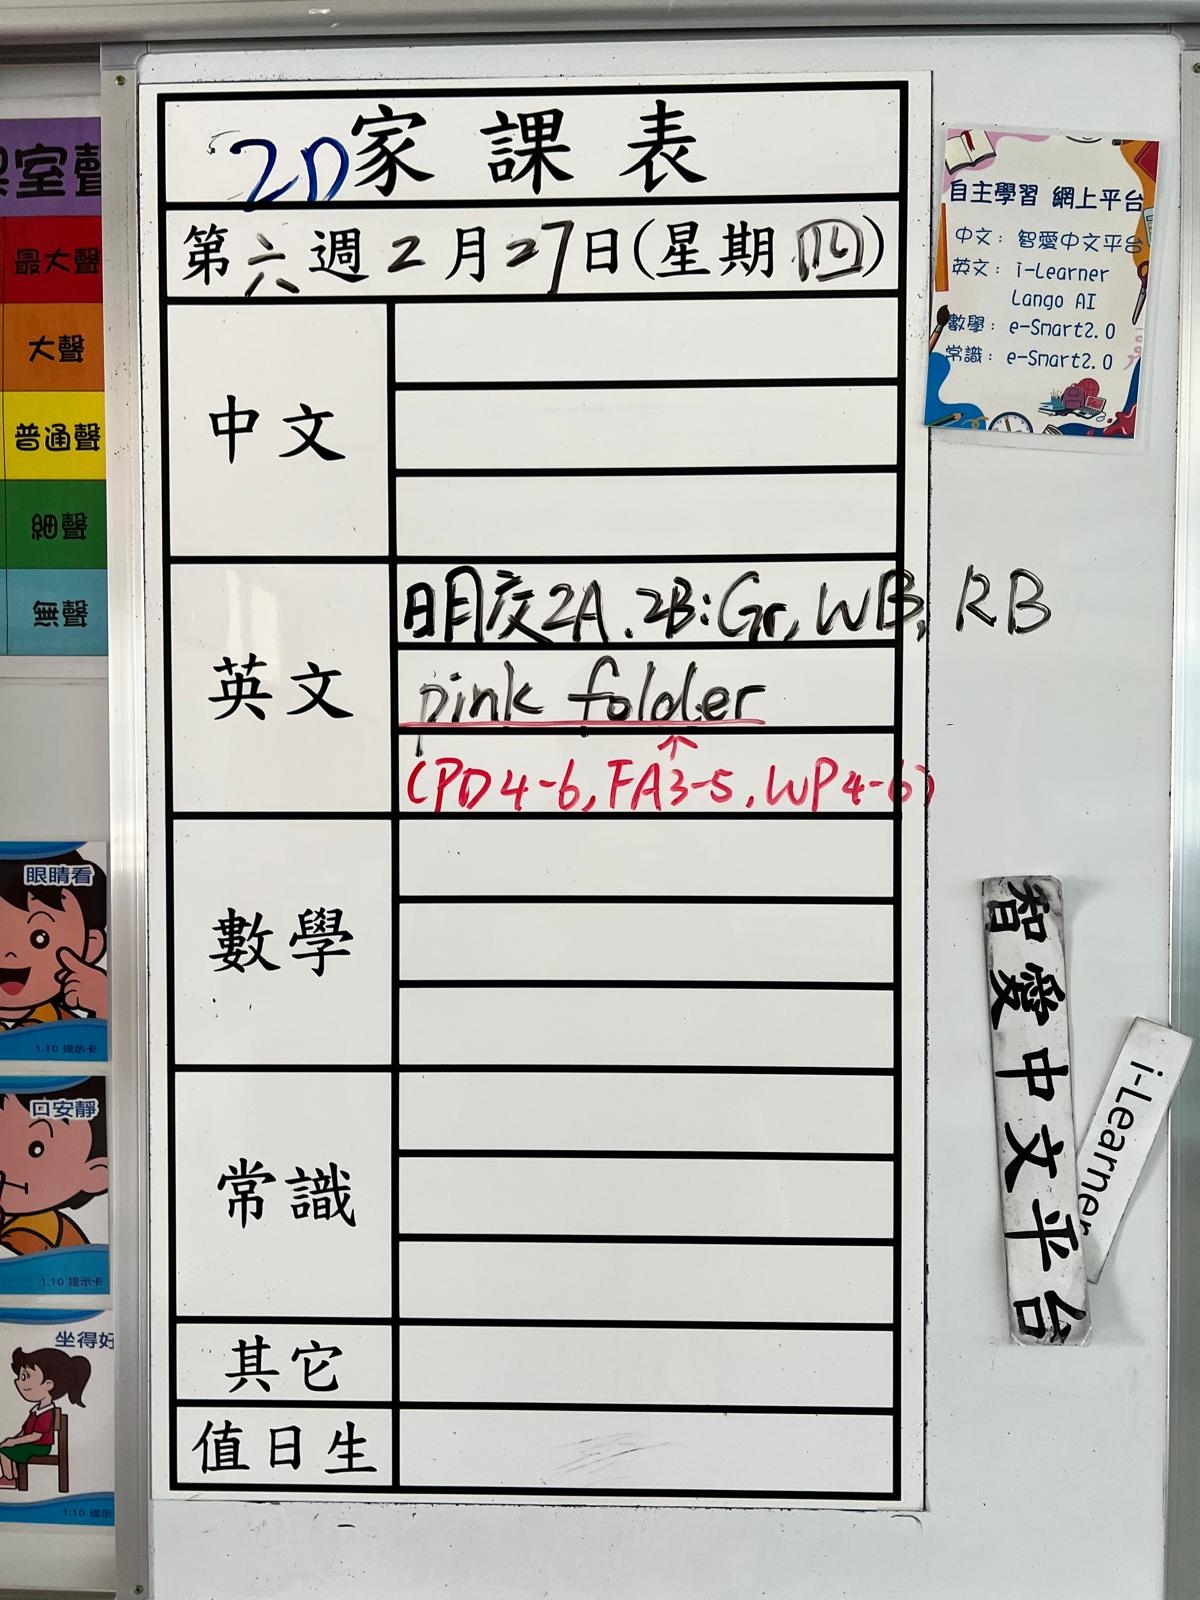 2D家課表
第六週2月27日(星期四)
中文
英文
明交2A、2B:Gr, WB, RB
pink folder
(PD4-6, FA3-5, WP4-6)
數學
常識
其它
值日生
自主學習 網上平台
中文: 智愛中文平台
英文: i-Learner
Lango AI
數學: e-Smart2.0
常識: e-Smart2.0
智愛中文平台
i-Learner
室聲
最大聲
大聲
普通聲
細聲
無聲
眼睛看
1.10 提示卡
口安靜
1.10 提示卡
坐得好
1.10 提示